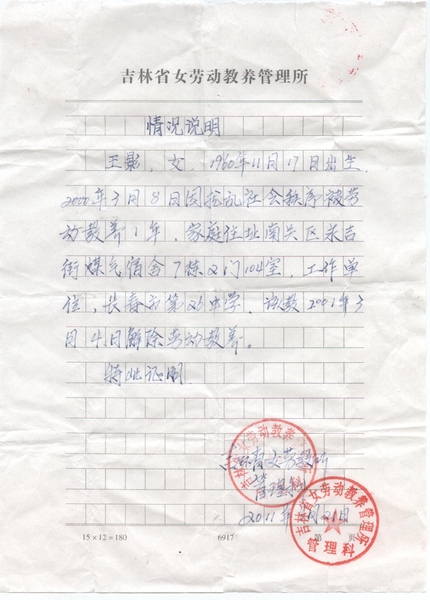 吉林省女劳动教养管理所
情况说明
王影，女，1960年11月17日出生，
2000年3月8日因扰乱社会秩序被劳
动教养1年，家庭住址南关区永吉
街煤气宿舍7栋2门104室，工作单
位，长春市第126中学。该教2001年3
月4日解除劳动教养。
特此证明
吉林省女劳教所
管理科
2011年 月21日
吉林省女劳动教养管理所
管理科
15×12=180 6917 第 页